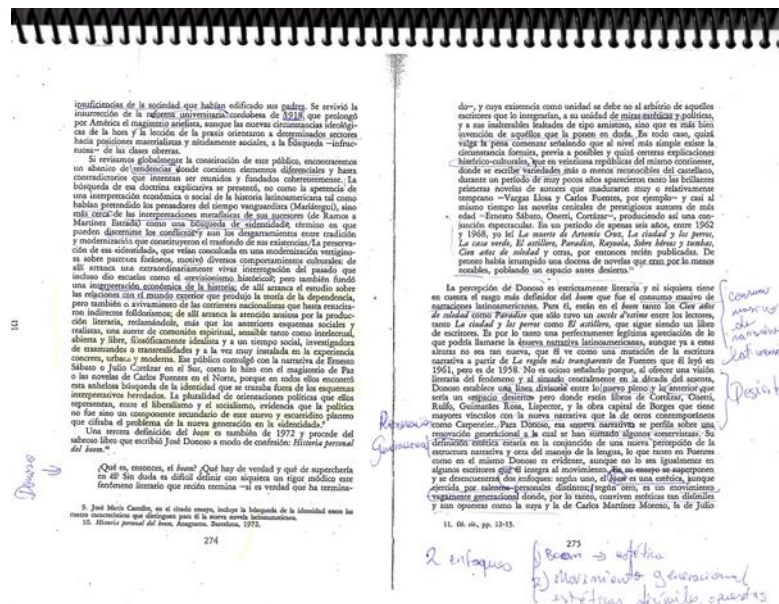 insuficiencias de la sociedad que habían edificado sus padres. Se revivió la
insurrección de la reforma universitaria cordobesa de 1918, que prolongó
por América el magisterio arielista, aunque las nuevas circunstancias ideológi-
cas de la hora y la lección de la praxis orientaron a determinados sectores
hacia posiciones materialistas y nítidamente sociales, a la búsqueda –infruc-
tuosa– de las clases obreras.
Si revisamos globalmente la constitución de este público, encontraremos
un abanico de tendencias donde coexisten elementos diferenciales y hasta
contradictorios que intentan ser reunidos y fundados coherentemente. La
búsqueda de esa doctrina explicativa se presentó, no como la apetencia de
una interpretación económica o social de la historia latinoamericana tal como
habían pretendido los pensadores del tiempo vanguardista (Mariátegui), sino
más cerca de las interpretaciones metafísicas de sus sucesores (de Ramos a
Martínez Estrada) como una búsqueda de «identidad», término en que
pueden discernirse los conflictos y aun los desgarramientos entre tradición
y modernización que constituyeron el trasfondo de sus existencias. La preserva-
ción de esa «identidad», que veían conculcada en una modernización vertigino-
sa sobre parores foráneos, motivó diversos comportamientos culturales: de
allí arranca una extraordinariamente vivaz interrogación del pasado que
incluso dio escuelas como el «revisionismo histórico»; pero también fundó
una interpretación económica de la historia; de allí arranca el estudio sobre
las relaciones con el mundo exterior que produjo la teoría de la dependencia,
pero también o avivamiento de las corrientes nacionalistas que hasta resucita-
ron indirectos folklorismos; de allí arranca la atención ansiosa por la produc-
ción literaria, reclamándole, más que los anteriores esquemas sociales y
realistas, una suerte de comunión espiritual, sensible tanto como intelectual,
abierta y libre, filosóficamente idealista y a un tiempo social, investigadora
de trasmundos o transrealidades y a la vez muy instalada en la experiencia
concreta, urbana y moderna. Ese público comulgó con la narrativa de Ernesto
Sábato o Julio Cortázar en el Sur, como lo hizo con el magisterio de Paz
o las novelas de Carlos Fuentes en el Norte, porque en todos ellos encontró
esta anhelosa búsqueda de la identidad que se trazaba fuera de los esquemas
interpretativos heredados. La pluralidad de orientaciones políticas que ellos
representan, entre el liberalismo y el socialismo, evidencia que la política
no fue sino un componente secundario de este nuevo y escurridizo planteo
que cifraba el problema de la nueva generación en la «identidad».⁹
Una tercera definición del boom es también de 1972 y procede del
sabroso libro que escribió José Donoso a modo de confesión: Historia personal
del boom.¹⁰
Donoso
¿Qué es, entonces, el boom? ¿Qué hay de verdad y de superchería
en él? Sin duda es difícil definir con siquiera un rigor módico este
fenómeno literario que recién termina –si es verdad que ha termina-
9. José María Castellet, en el citado ensayo, incluye la búsqueda de la identidad entre las
cuatro características que distinguen para él la nueva novela latinoamericana.
10. Historia personal del boom, Anagrama. Barcelona, 1972.
274
do–, y cuya existencia como unidad se debe no al arbitrio de aquellos
escritores que lo integrarían, a su unidad de miras estéticas y políticas,
y a sus inalterables lealtades de tipo amistoso, sino que es más bien
invención de aquéllos que la ponen en duda. En todo caso, quizá
valga la pena comenzar señalando que al nivel más simple existe la
circunstancia fortuita, previa a posibles y quizá certeras explicaciones
histórico-culturales, que en veintiuna repúblicas del mismo continente,
donde se escribe variedades más o menos reconocibles del castellano,
durante un período de muy pocos años aparecieron tanto las brillantes
primeras novelas de autores que maduraron muy o relativamente
temprano –Vargas Llosa y Carlos Fuentes, por ejemplo– y casi al
mismo tiempo las novelas cenitales de prestigiosos autores de más
edad –Ernesto Sábato, Onetti, Cortázar–, produciendo así una con-
junción espectacular. En un período de apenas seis años, entre 1962
y 1968, yo leí La muerte de Artemio Cruz, La ciudad y los perros,
La casa verde, El astillero, Paradiso, Rayuela, Sobre héroes y tumbas,
Cien años de soledad y otras, por entonces recién publicadas. De
pronto había irrumpido una docena de novelas que eran por lo menos
notables, poblando un espacio antes desierto.¹¹
La percepción de Donoso es estrictamente literaria y ni siquiera tiene
en cuenta el rasgo más definidor del boom que fue el consumo masivo de
narraciones latinoamericanas. Para él, están en el boom tanto los Cien años
de soledad como Paradiso que sólo tuvo un succès d'estime entre los lectores,
tanto La ciudad y los perros como El astillero, que sigue siendo un libro
de escritores. Es por lo tanto una perfectamente legítima apreciación de lo
que podría llamarse la «nueva narrativa latinoamericana», aunque ya a estas
alturas no sea tan nueva, que él ve como una mutación de la escritura
narrativa a partir de La región más transparente de Fuentes que él leyó en
1961, pero es de 1958. No es ocioso señalarlo porque, al ofrecer una visión
literaria del fenómeno y al situarlo centralmente en la década del sesenta,
Donoso establece una línea divisoria entre lo nuevo pleno y lo anterior que
sería un «espacio desierto» pero donde están libros de Cortázar, Onetti,
Rulfo, Guimarães Rosa, Lispector, y la obra capital de Borges que tiene
mayores vínculos con la nueva narrativa que la de otros contemporáneos
como Carpentier. Para Donoso, esa «nueva narrativa» se perfila sobre una
renovación generacional a la cual se han sumado algunos «reservistas». Su
definición estética estaría en la conjunción de una nueva percepción de la
estructura narrativa y otra del manejo de la lengua, lo que tanto en Fuentes
como en el mismo Donoso es evidente, aunque no lo sea igualmente en
algunos escritores que él integra al movimiento. En su ensayo se superponen
y se desencuentran dos enfoques: según uno, el boom es una estética, aunque
ejercida por talentos personales distintos; según otro, es un movimiento
vagamente generacional donde, por lo tanto, conviven estéticas tan disímiles
y aun opuestas como la suya y la de Carlos Martínez Moreno, la de Julio
consumo
masivo
de
Renovación
Generacional
11. Ob. cit., pp. 12-13.
275
2 enfoques
1) Boom → estética
2) Movimiento generacional
estéticas disímiles, opuestas